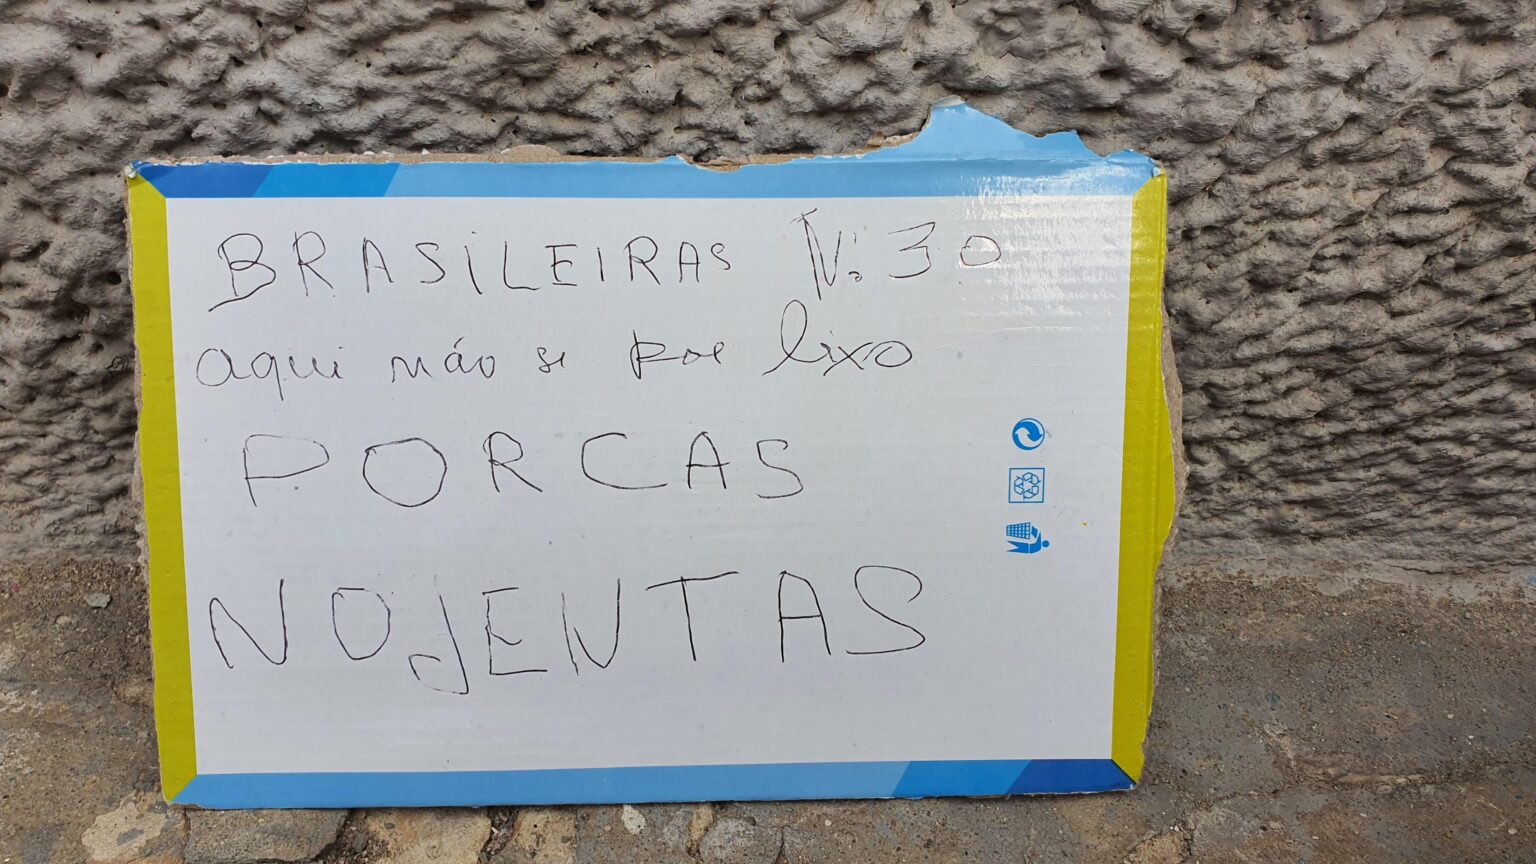 BRASILEIRAS N: 30
aqui não se poe lixo
PORCAS
NOJENTAS